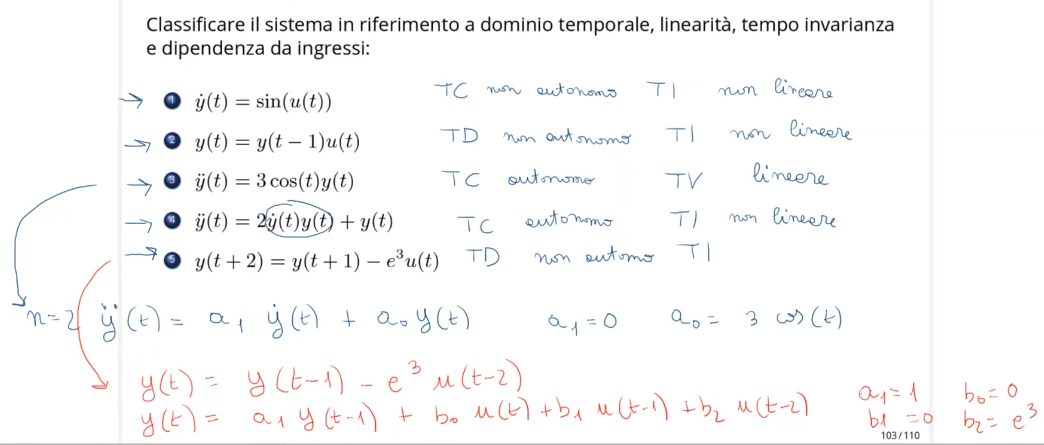 Classificare il sistema in riferimento a dominio temporale, linearità, tempo invarianza
e dipendenza da ingressi:
1 ẏ(t) = sin(u(t)) TC non autonomo TI non lineare
2 y(t) = y(t − 1)u(t) TD non autonomo TI non lineare
3 ÿ(t) = 3 cos(t)y(t) TC autonomo TV lineare
4 ÿ(t) = 2ẏ(t)y(t) + y(t) TC autonomo TI non lineare
5 y(t + 2) = y(t + 1) − e³u(t) TD non automo TI
n=2 ÿ(t) = a₁ ẏ(t) + a₀ y(t) a₁=0 a₀= 3 cos(t)
y(t) = y(t-1) - e³ u(t-2)
y(t) = a₁ y(t-1) + b₀ u(t) + b₁ u(t-1) + b₂ u(t-2) a₁=1 b₀=0
b1 =0 b₂= e³
103/110